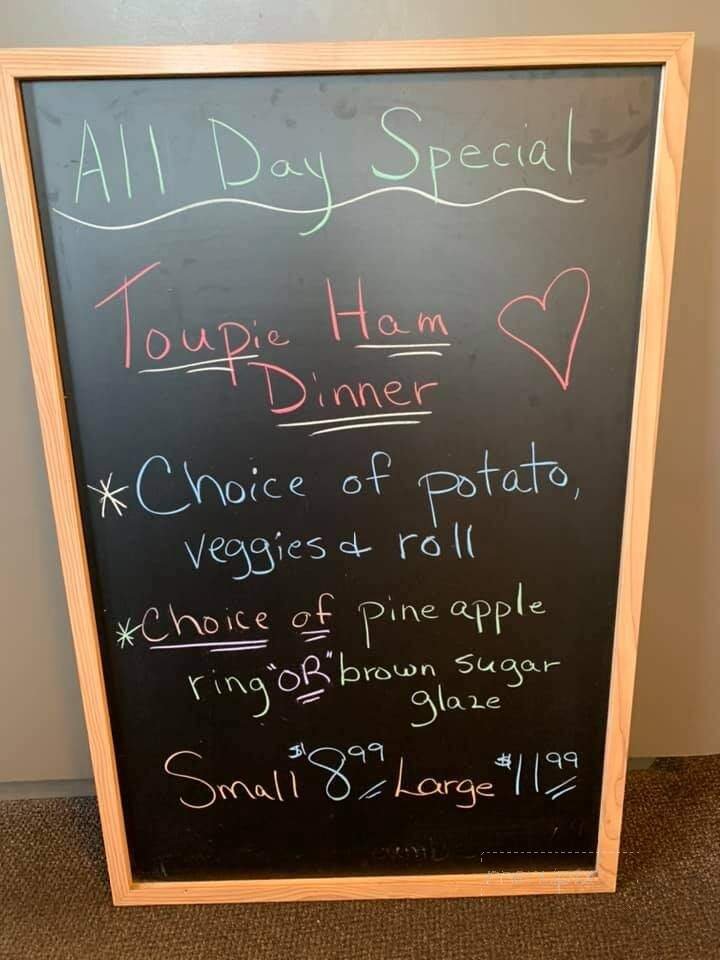 All Day Special
Toupie Ham
Dinner
* Choice of potato,
veggies & roll
* Choice of pineapple
ring "OR" brown sugar
glaze
Small $8.99 Large $11.99